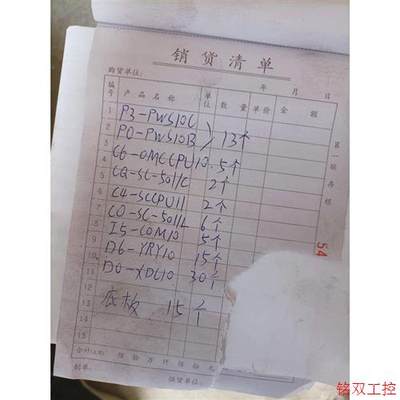 销货清单
购货单位: 年 月 日
编号 产品名称 单位 数量 单价 金额
1 P3-PWS10C
2 P0-PWS10B } 13个
3 C6-OMCCPU10 5个
4 CQ-SC-5011C 2个
5 C4-SCCPU11 2个
6 C0-SC-5011L 6个
7 I5-COM10 5个
8 D6-YRY10 15个
9 D0-XDC10 30个
10
11
12 底板 15个
13
14
15
合计(大写) 拾 万 仟 佰 元
制单: 供货单位:
第一联存根
54
铭双工控